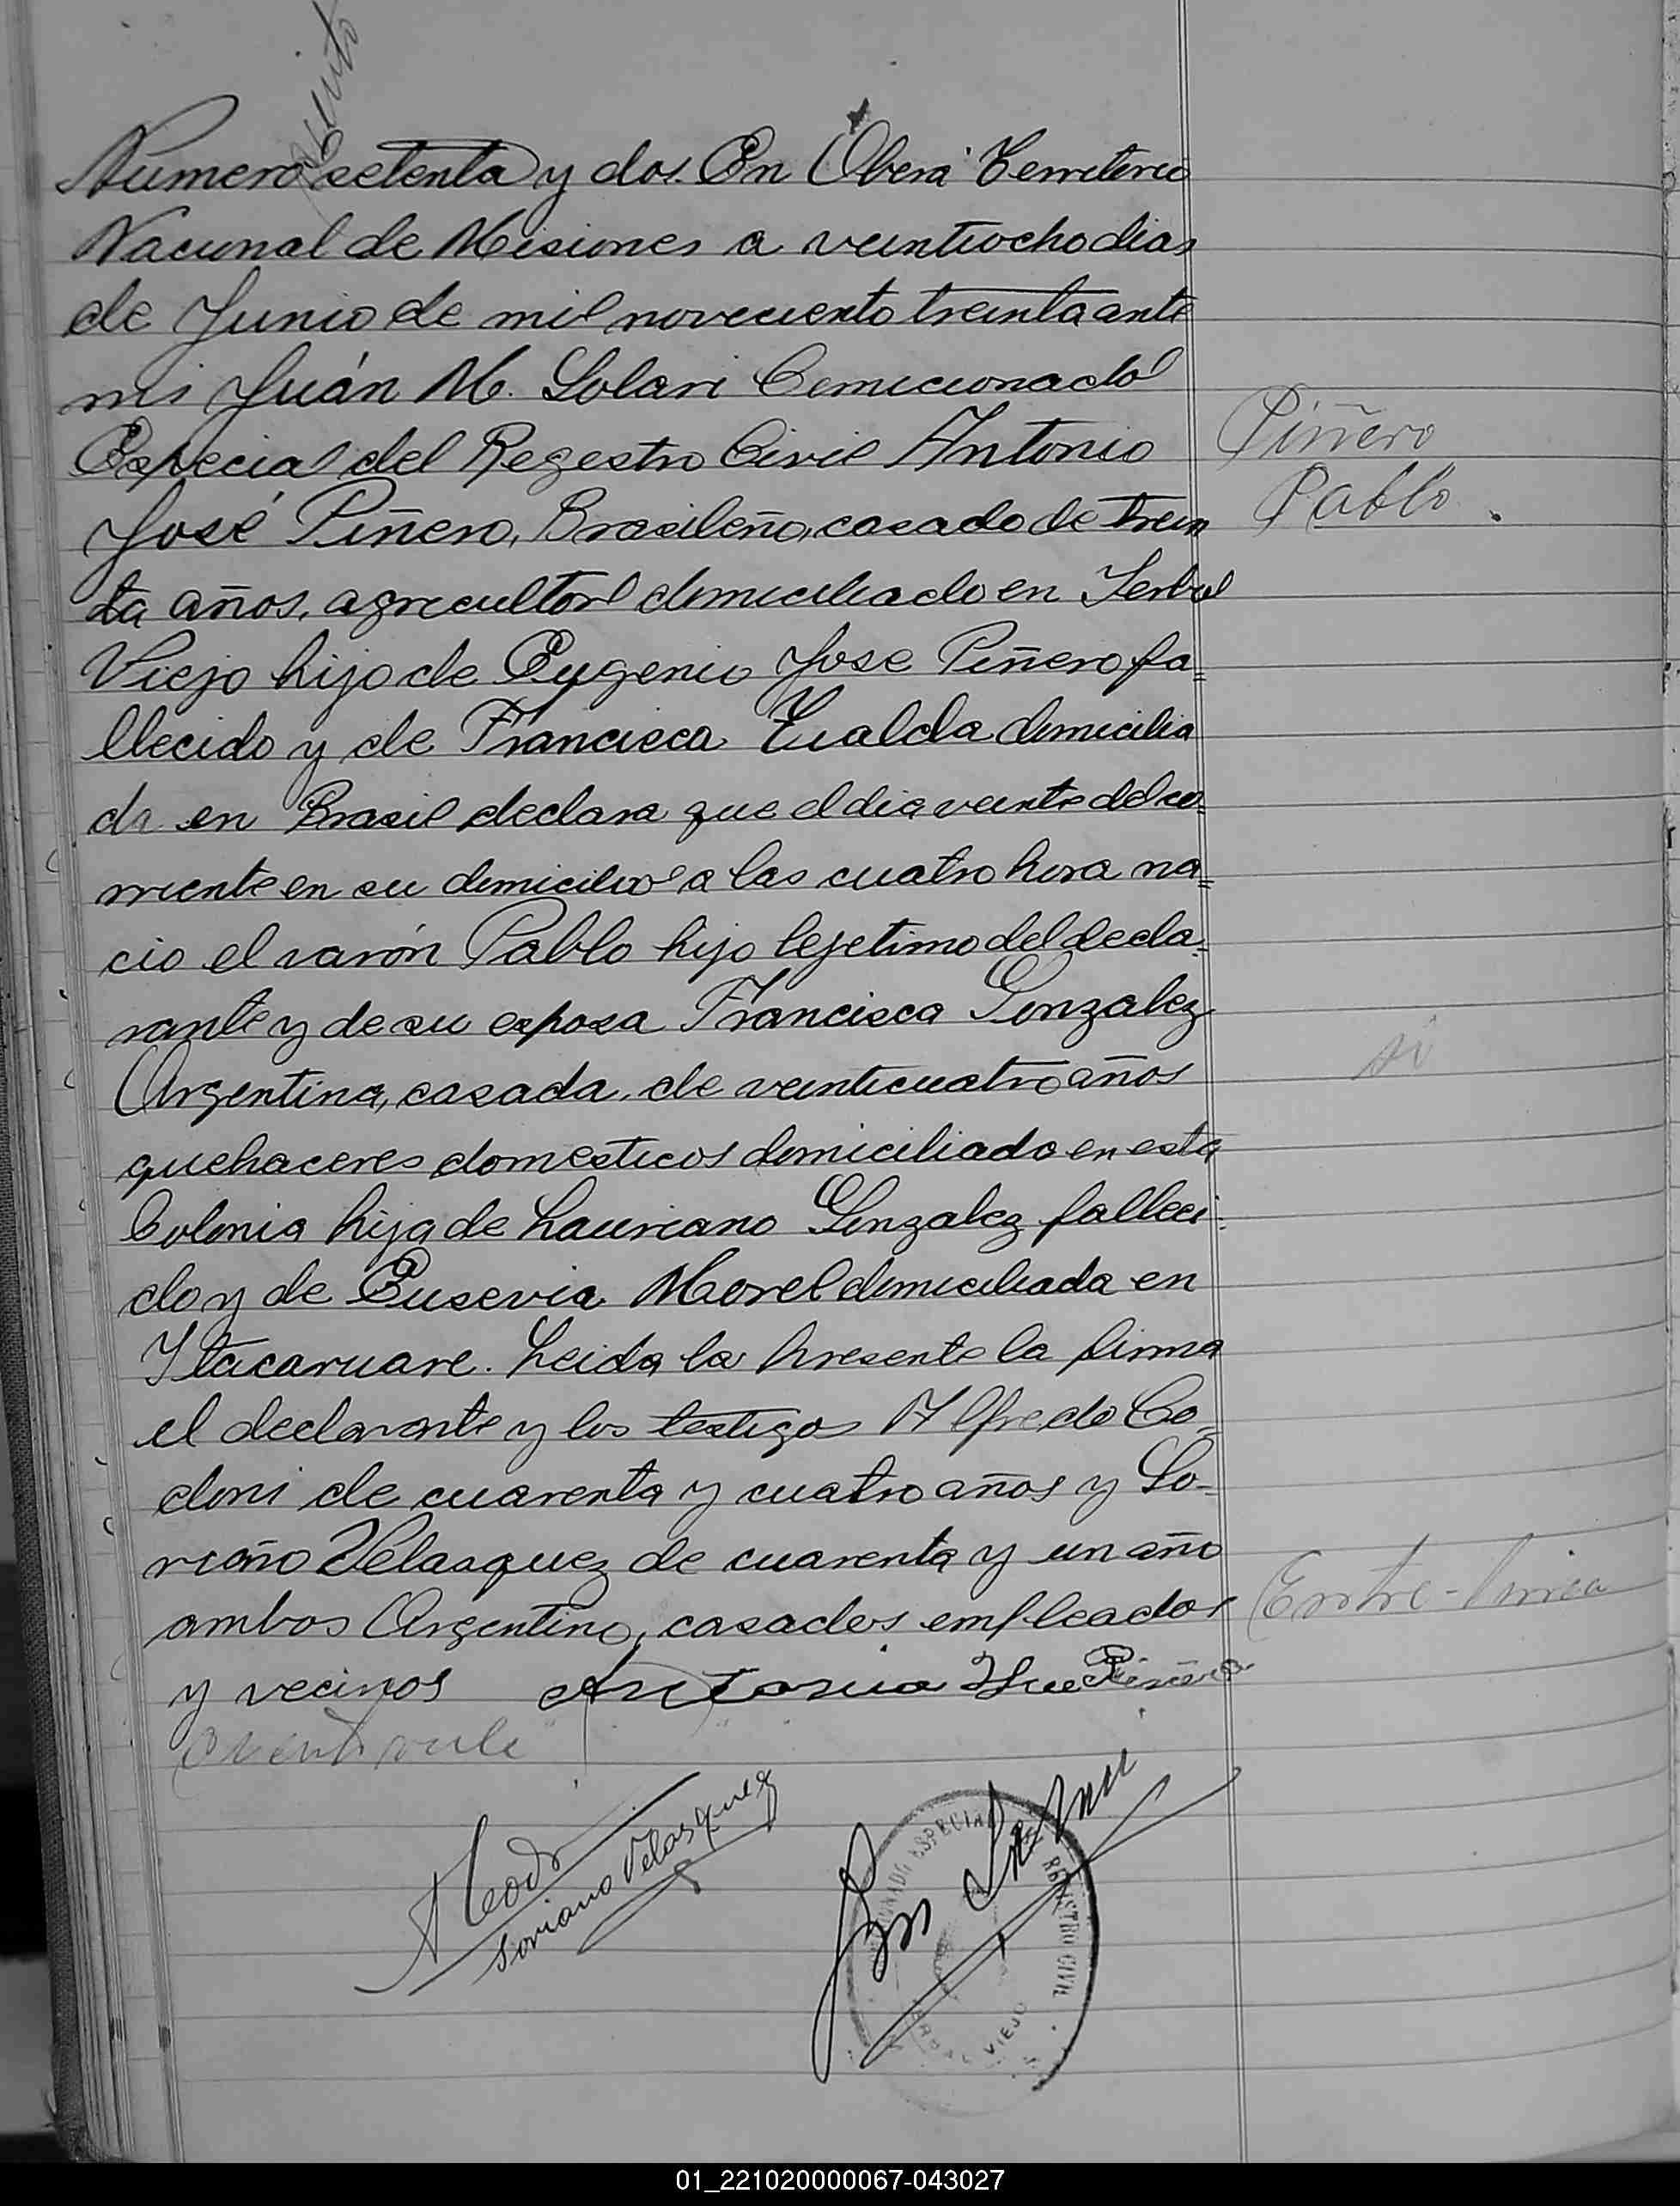 Numero setenta y dos. En Oberá Territorio
Nacional de Misiones a veintiocho dias
de Junio de mil noveciento treinta ante
mi Juán M. Solari Comicionado
Especial del Registro Civil Antonio
José Piñero, Brasileño, casado de trein
ta años, agricultor domiciliado en Yerbal
Viejo hijo de Eugenio Jose Piñero fa=
llecido y de Francisca domicilia
da en Brasil declara que el dia veinte del co=
rriente en su domicilio a las cuatro hora na=
cio el varón Pablo hijo lejetimo del decla=
rante y de su esposa Francisca Gonzalez
Argentina, casada, de veinticuatro años
quehaceres domesticos domiciliado en esta
Colonia hija de Lauriano Gonzalez falleci=
do y de Eusevia Morel domiciliada en
Itacaruare. Leida la presente la firma
el declarante y los testigos Alfredo Co=
doni de cuarenta y cuatro años y So=
riaño Velasquez de cuarenta y un año
ambos Argentino, casados empleados
y vecinos Antonio Jose Piñero
Piñero
Pablo.
si
Entre-linea
vale
Soriano Velasquez
ESPECIAL REGISTRO CIVIL
VIEJO
01_221020000067-043027